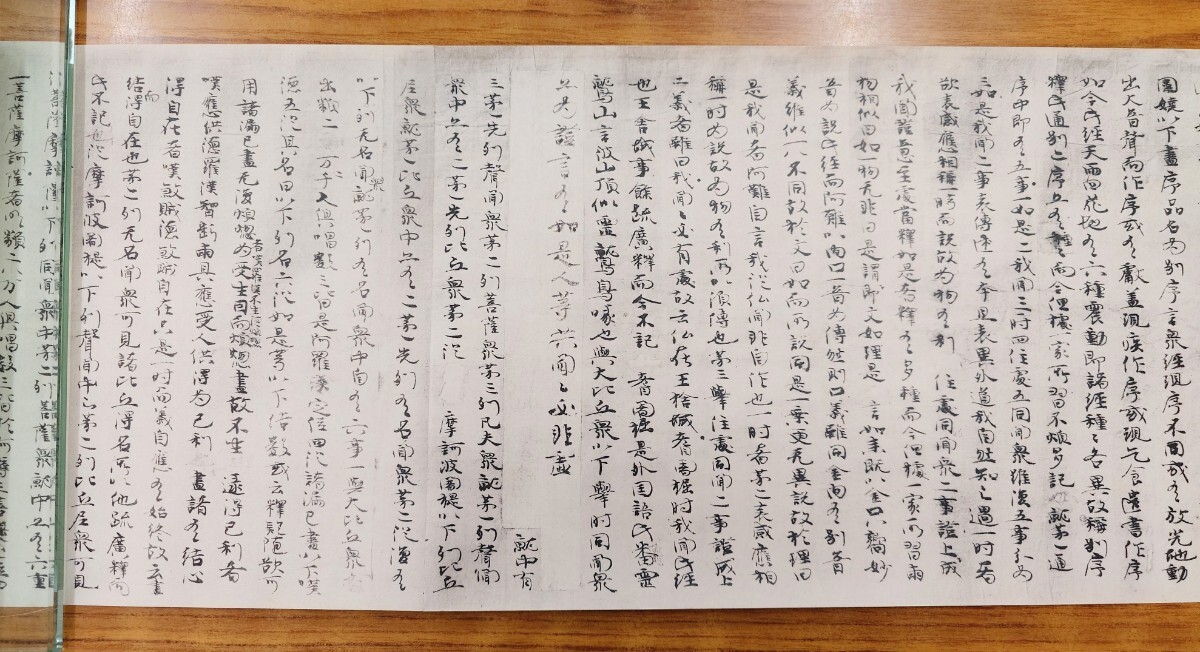 圍繞以下盡序品名為別序言衆經現序不同或有放光地動
出大音聲而作序或有獻蓋現疾作序或現乞食遣書作序
如今此經天雨四花地有六種震動即諸經種々各異故稱別序
釋此通別二序且有五種而今但據一家所習不煩多記 就第一通
序中即有五事一如是二我聞三時四住處五同聞衆雖復五事分為
三如是我聞二事表傳法有本且表異外道我自然知之過一時者
欲表感應相稱一時而説故為物有利 住處同聞衆二事證上成
我聞證意至處當釋如是者釋有多種而今但據一家所習兩
物相似曰如一物无非曰是謂即文如理是 言如来既以金口嚮妙
音為説此經而阿難以尚口音為傳然則口義雖同金尚有別音
義雖似人不同故於文曰如而所説同是一乘更无異説故於理曰
是我聞者阿難自言我従仏聞非自作也一時者第二表感應相
稱一時為説故為物有利所以須傳也第三舉住處同聞二事證成上
二義者雖曰我聞々必有處故云仏在王捨城耆闍崛時我聞此経
也王舎城事餘疏廣釋而今不記 耆闍崛是外国語此番霊
鷲山言此山頂似霊鷲鳥喙也與大比丘衆以下舉時同聞衆
且為證言有如是人等共聞々必非虚
就中有
三第一先列聲聞衆第二列菩薩衆第三列凡夫衆就第一列聲聞
衆中且有二第一先列比丘衆第二従 摩訶波闍提以下列比丘
尼衆就第一比丘衆中且有二第一先列有名聞衆第二従復有
以下列无名聞衆就第一列有名聞衆中自有六事一與大比丘衆
出數二 万二千人倶唱數三皆是阿羅漢定位四従諸漏已盡以下嘆
徳五従其名曰以下列名六従如是等以下結數或云釋疑随歡可
用諸漏已盡无復煩惱為受生因而煩惱盡故不生 逮得己利者
嘆應供徳羅漢智断兩具應受人供得為己利 盡諸有結心
得自在者嘆敵賊徳敵賊自在只是一時而義自應有始終故云盡
結而得自在也第二列无名聞衆可見諸比丘得名所以他疏廣釋而
此不記也従摩訶波闍提以下列聲聞中之第二列比丘尼衆可見
従菩薩摩訶薩以下列同聞衆中第二列菩薩衆就中且有六重
一菩薩摩訶薩者明類二八万人倶唱數三皆於阿耨